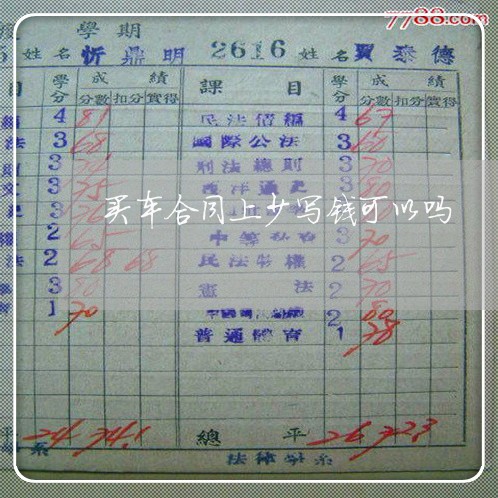 7788.com
學期
姓名 忻鼎明 2616 姓名 賈泰德
目 學分 成績 課目 學分 成績
分數 扣分 實得 分數 扣分 實得
4 81 民法債編 4 67
法 3 68 國際公法 3 60
3 刑法總則 3 70
3 75 西洋通史 3 80
买车合同上少写钱可以吗
2 65 3 70
法 2 68 68 民法物權 2 65
3 80 憲法 2 70
1 70 2 80
普通體育 1 78
平 24 74.1 總平 26 72.3
系 法律學系